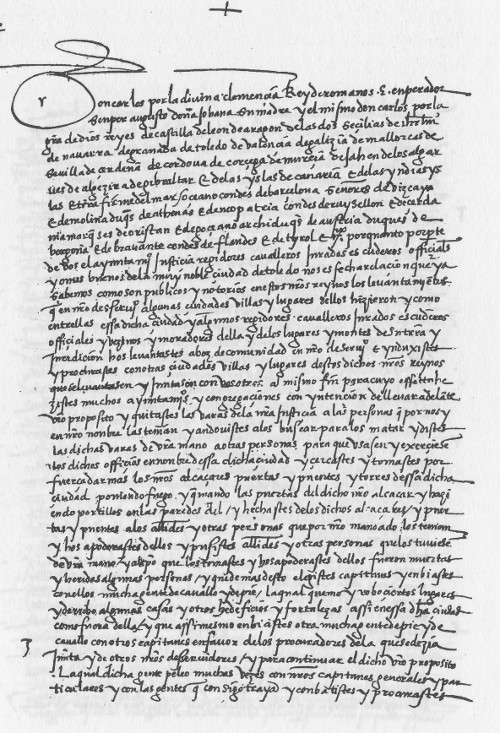 don carlos por la divina clemencia Rey de romanos E enperador
senper augusto doña Johana su madre y el mismo don carlos por la
grã de dios reyes de castilla de leon de aragon de las dos secilias de iherlm
de navarra de granada de toledo de valençia de galizia de mallorcas de
sevilla de cerdeña de cordova de corçega de murcia de Jahen de los algar
ves de algezira de gibraltar E de las yslas de canaria E de las yndias ys
las E tierra firme del mar oceano condes de barcelona señores de vizcaya
E de molina duqs de athenas E de neopatria condes de ruysellon E de cerda
nia marqses de oristan E de goçiano archiduqs de austria duques de
borgoña E de bravante condes de flandes E de tirol Etc por quanto por pte
de vos el ayuntamyº Justicia regidores cavalleros Jurados escuderos officiales
y omes buenos de la muy noble ciudad de toledo nos es fecha relacion que ya
sabemos como son publicos y notorios en estos nros reynos los levantamyentos
q en nro deserviº algunas ciudades villas y lugares dellos hizieron y como
entrellas essa dicha ciudad y algunos regidores cavalleros Jurados escuderos
officiales y vezinos y moradores della y de los lugares y montes de su trra y
Jurediciõn hos levantastes a boz de comunidad en nro deserviº E ynduxistes
y procurastes con otras ciudades villas y lugares destos dichos nros reynos
que se levantasen y Juntasen con vosotros al mismo fin para cuyo effetto he
zistes muchos ayuntamyºs y congregaciones con yntencion de llevar adelante
vro proposito y quitastes las varas de la nra Justicia a las personas q por nos y
en nro nonbre las tenian y andovistes a los buscar para los matar y distes
las dichas varas de vra mano a otras personas para que usasen y exerciese
los dichos officios en nonbre dessa dicha ciudad y cercastes y tomastes por
fuerça de armas los nros alcaçares puertas y puentes y torres dessa dicha
ciudad poniendo fuego y quemando las puertas del dicho nro alcaçar y hazi
endo portillos en las paredes del y hechastes de los dichos alcaçares y puer
tas y puentes a los allides y otras personas que por nro mandado los tenian
y hos apoderastes dellos y pusistes allides y otras personas que los tuviese
de vra mano y al tpo que los tomastes y hos apoderastes dellos fueron muertas
y heridas algunas personas y que demas desto elegistes capitanes y enbiastes
con ellos mucha gente de cavallo y de pie la qual quemo y robo ciertos lugares
y derribo algunas casas y otros hedeficios y fortalezas assi en essa dha ciudad
como fuera della y que assimesmo enbiastes otra mucha gente de pie y de
cavallo con otros capitanes en favor de los procuradores de la que se dezia
Junta y de otros nros deservidores y para continuar el dicho vro proposito
La qual dicha gente peleo muchas vezes con nros capitanes generales y par
ticulares y con las gentes q consigo trayan y conbatistes y procurastes